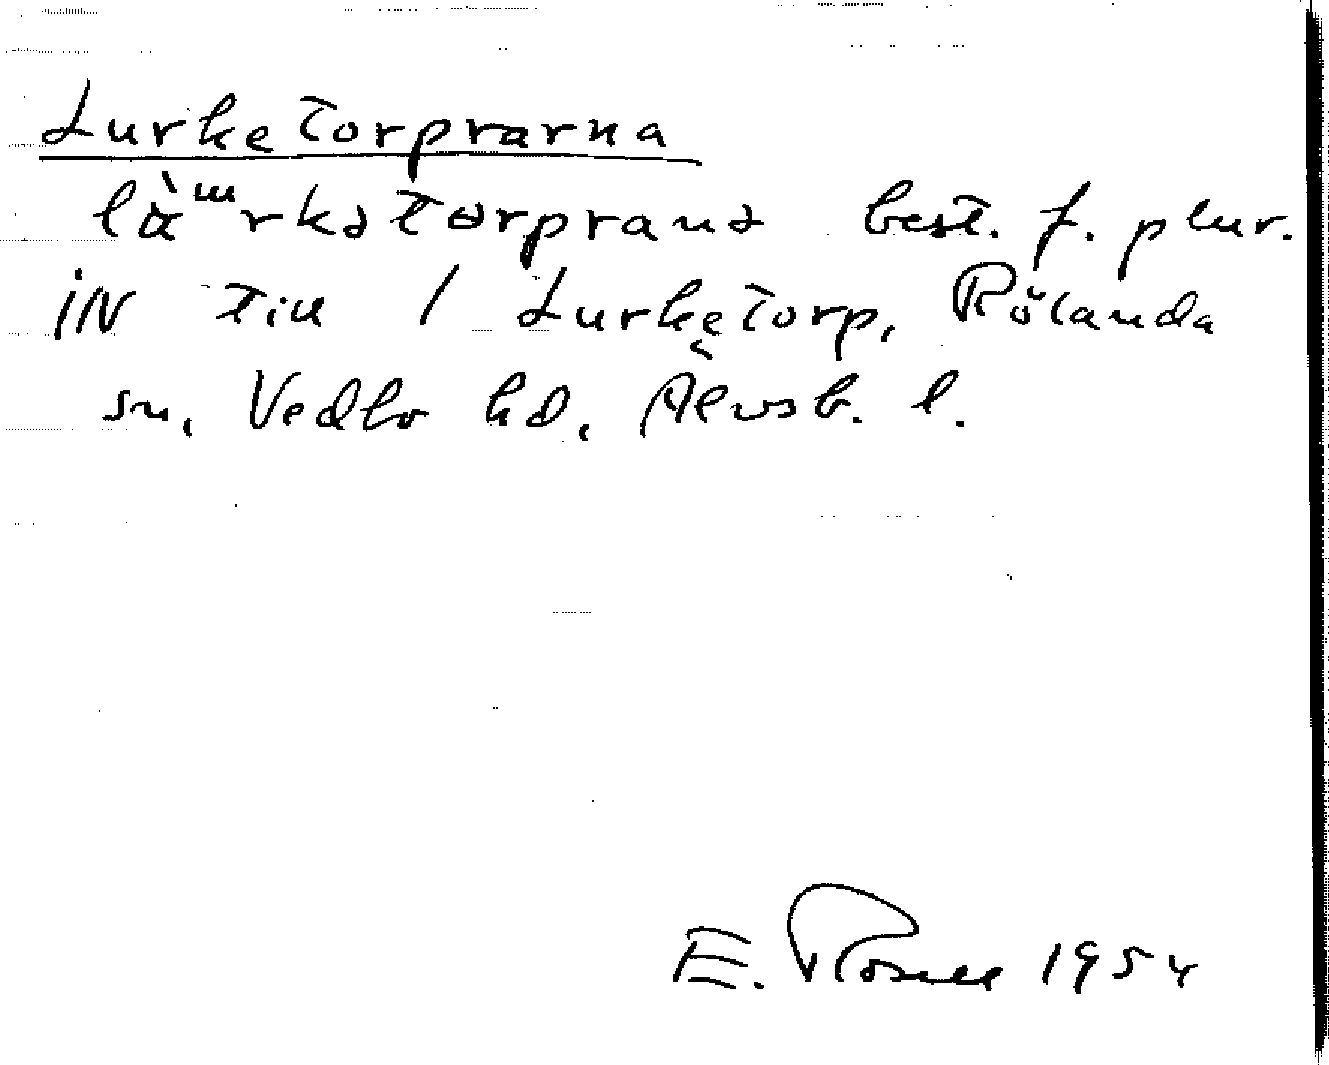 Lurketorprarna
best. f. plur.
IN till 1 Lurketorp, Rölanda
sn, Vedbo hd, Älvsb. l.
E. Rosell 1954